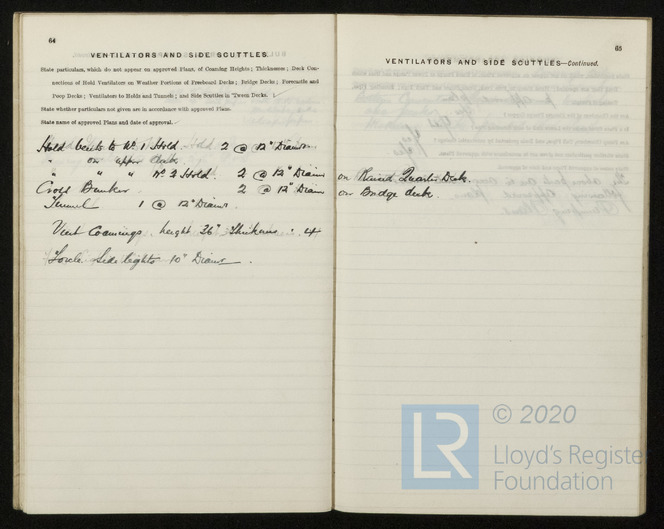 64
VENTILATORS AND SIDE SCUTTLES.
State particulars, which do not appear on approved Plans, of Coaming Heights; Thicknesses; Deck Con-
nections of Hold Ventilators on Weather Portions of Freeboard Decks; Bridge Decks; Forecastle and
Poop Decks; Ventilators to Holds and Tunnels; and Side Scuttles in 'Tween Decks.
State whether particulars not given are in accordance with approved Plans.
State name of approved Plans and date of approval.
Hold vents to No. 1 Hold. 2 @ 12" Diam
" on upper deck
" " " No. 2 Hold. 2 @ 12" Diam on Raised Quarter Deck.
Cross Bunker 2 @ 12" Diam on Bridge deck.
Tunnel 1 @ 12" Diam
Vent Coamings height 36" Thickness .4
Side lights 10" Diam.
65
VENTILATORS AND SIDE SCUTTLES—Continued.
LR
© 2020
Lloyd's Register
Foundation